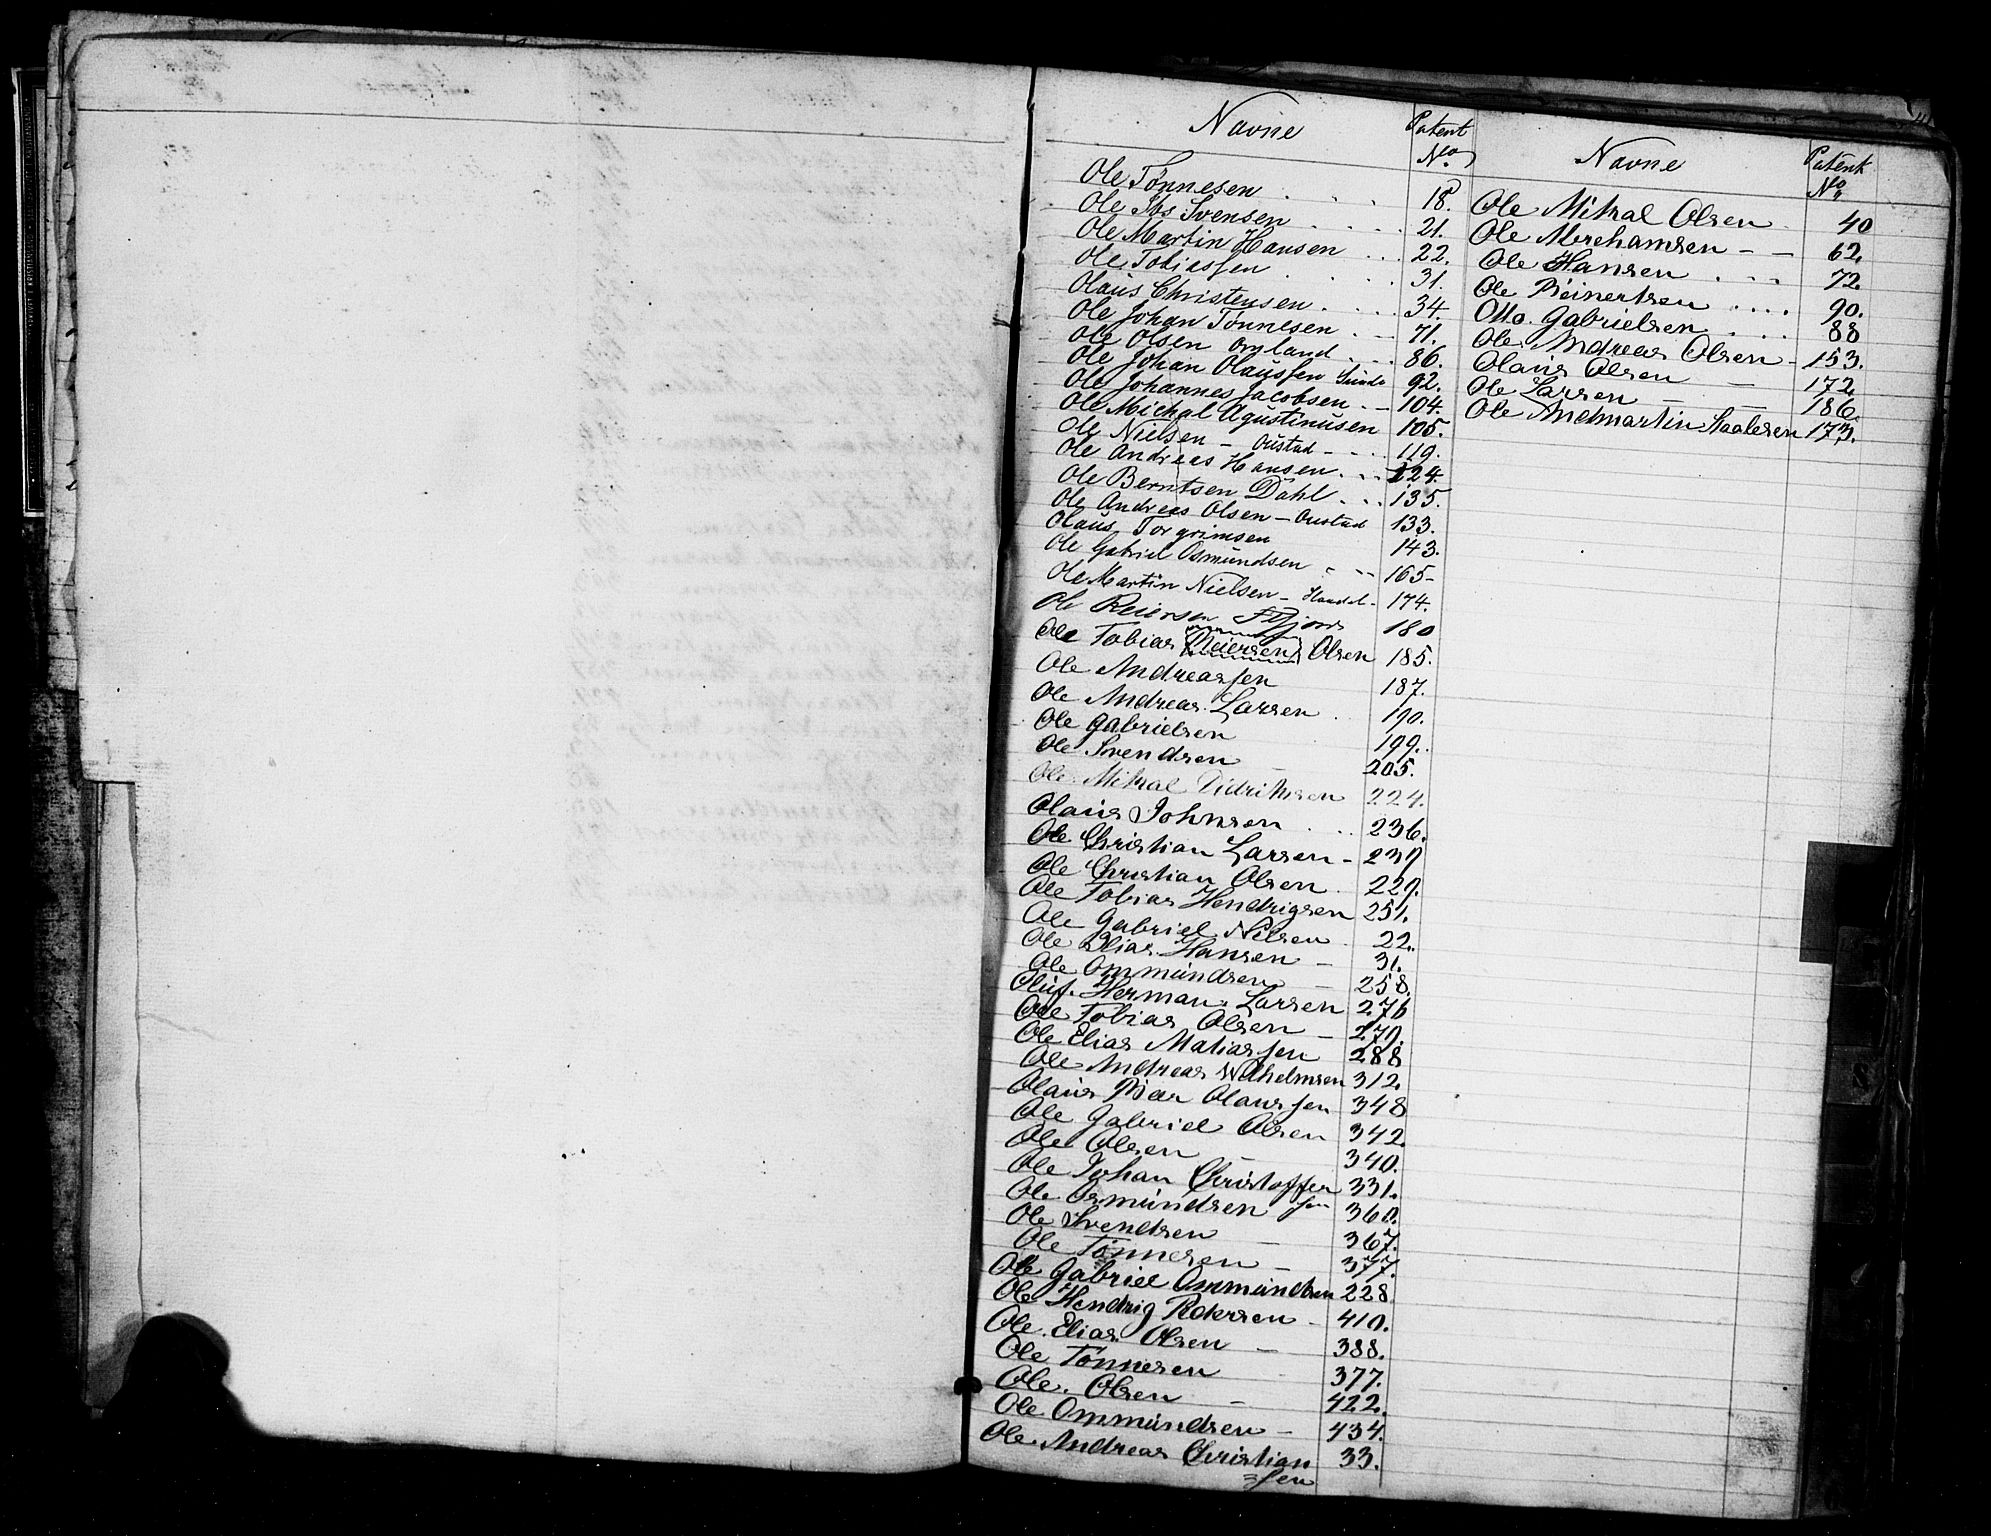 Navne Patent No.
Ole Tønnesen . . . 18.
Ole Ths Svensen . . . . 21.
Ole Martin Hansen . . . 22.
Ole Tobiassen . . . . 31.
Olaus Christensen . . . . 34.
Ole Johan Tønnesen . — 71.
Ole Olsen Omland . . . . 86.
Ole Johan Olaussen Sunde 92.
Ole Johannes Jacobsen . — 104.
Ole Michal Agustinusen 105.
Ole Nielsen — Oustad — . . 119.
Ole Andreas Hansen . . . 124.
Ole Berntsen Dahl . . . 135.
Ole Andreas Olsen — Oustad 133.
Olaus Torgrimsen 143.
Ole Gabriel Osmundsen - - - 165-
Ole Martin Nielsen — 174.
Ole Reiersen 180
Ole Tobias (Reiersen) Olsen 185.
Ole Andreassen 187.
Ole Andreas Larsen . 190.
Ole Gabrielsen 199.
Ole Svendsen — 205.
Ole Mikal Didriksen 224.
Olaus Johnsen . . . 236.
Ole Christian Larsen — 239
Ole Christian Olsen . 229.
Ole Tobias Hendrigsen 251.
Ole Gabriel Nilsen . 22.
Ole Elias Hansen — 31.
Ole Ommundsen — 258.
Oluf. Herman Larsen 276
Ole Tobias Olsen — 279.
Ole Elias Matiassen 288
Ole Andreas Wilhelmsen 312.
Olaus Olaussen 348
Ole Gabriel Olsen 342.
Ole Olsen — 340.
Ole Johan Christoffer 331.
sen
Ole Osmundsen 360.
Ole Svendsen — 367.
Ole Tønnesen — 377.
Ole Gabriel Ommundsen 228
Ole Hendrig Pedersen — 410.
Ole Elias Olsen — 388.
Ole Tønnesen 377.
Ole Olsen — 422.
Ole Ommundsen — 434.
Ole Andreas Christian 33.
sen
Navne Patent No.
Ole Mikal Olsen . 40
Ole Abrehamsen — — 62.
Ole Hansen . . . . 72.
Ole Reinertsen . . . . 90.
Otto Gabrielsen . . . . 88
Ole Andreas Olsen — 153.
Olaus Olsen — 172.
Ole Larsen — — 186.
Ole Andmartin Staalesen 173.